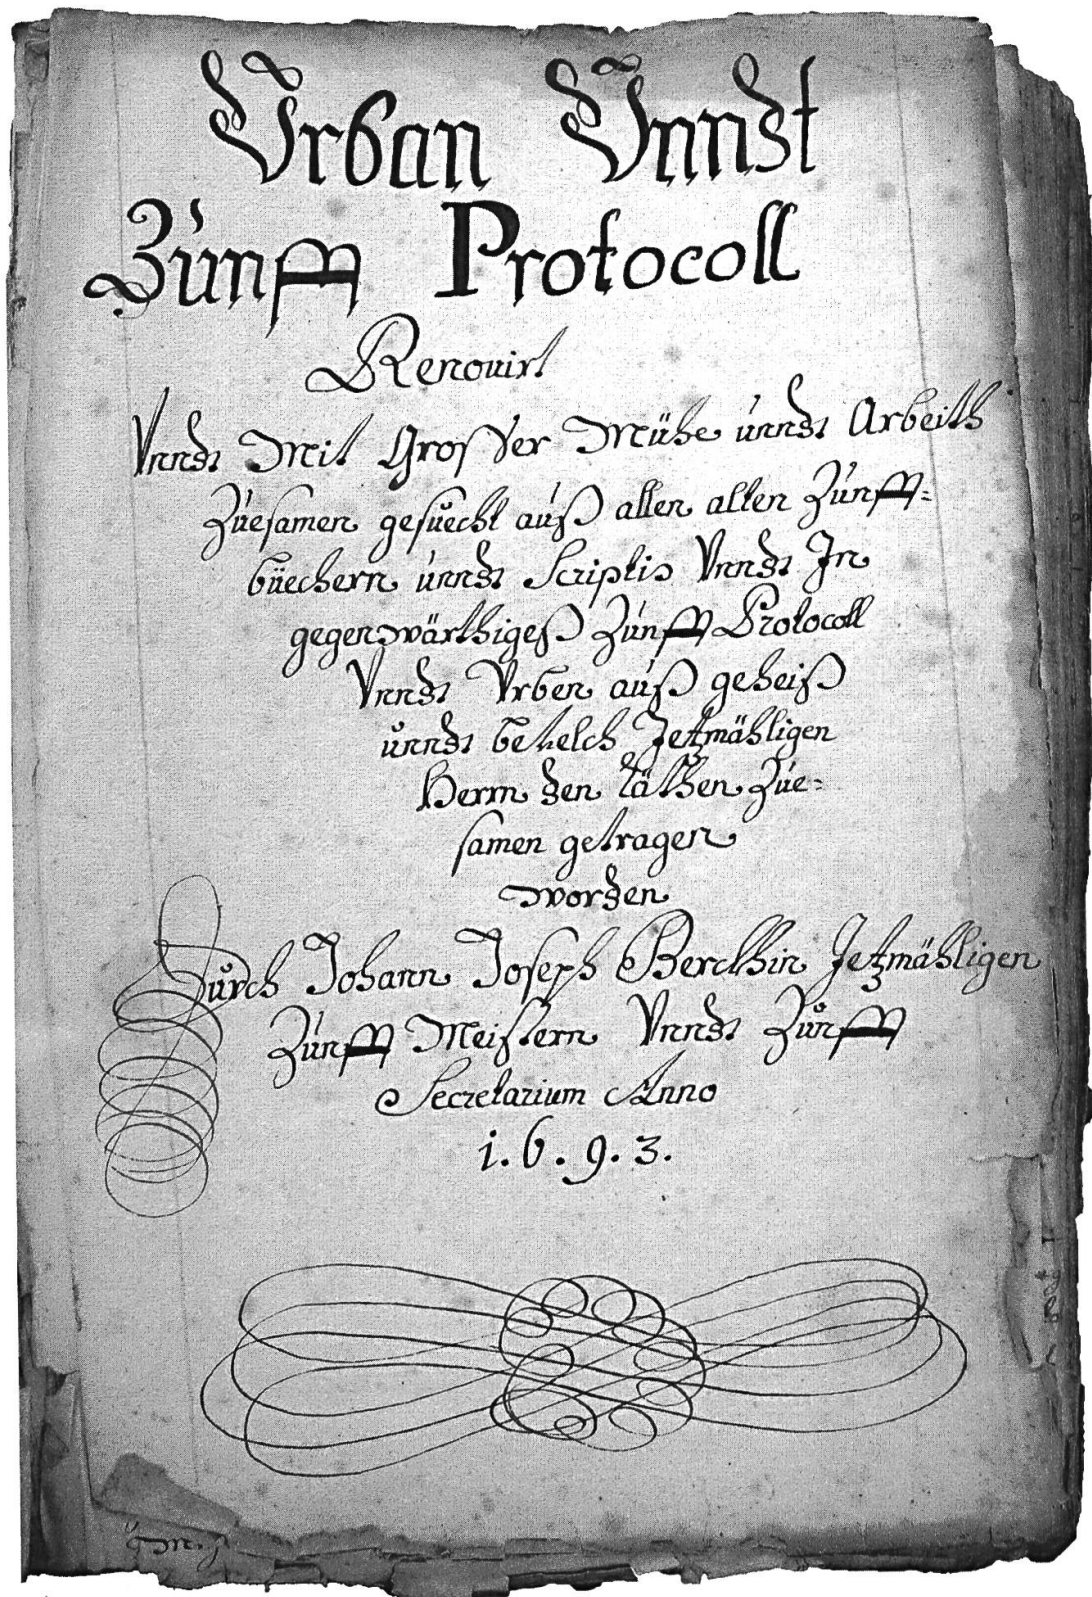 Urban Unndt
Zúnfft Protocoll
Renovirt
Vnndt Mit Grosser Mühe únndt Arbeith
Zúesamen gesuecht aúß allen alten Zúnfft=
büechern únndt Scriptis Vnndt In
gegenwärthigeß Zúnfft Protocoll
Vnndt Vrben aúß geheiß
únndt befelch Jetzmähligen
Herrn den Räthen Zúe=
samen getragen
worden
Dúrch Johann Joseph Bercthin Jetzmähligen
Zúnfft Meistern Vnndt Zúnfft
Secretarium Anno
1.6.9.3.